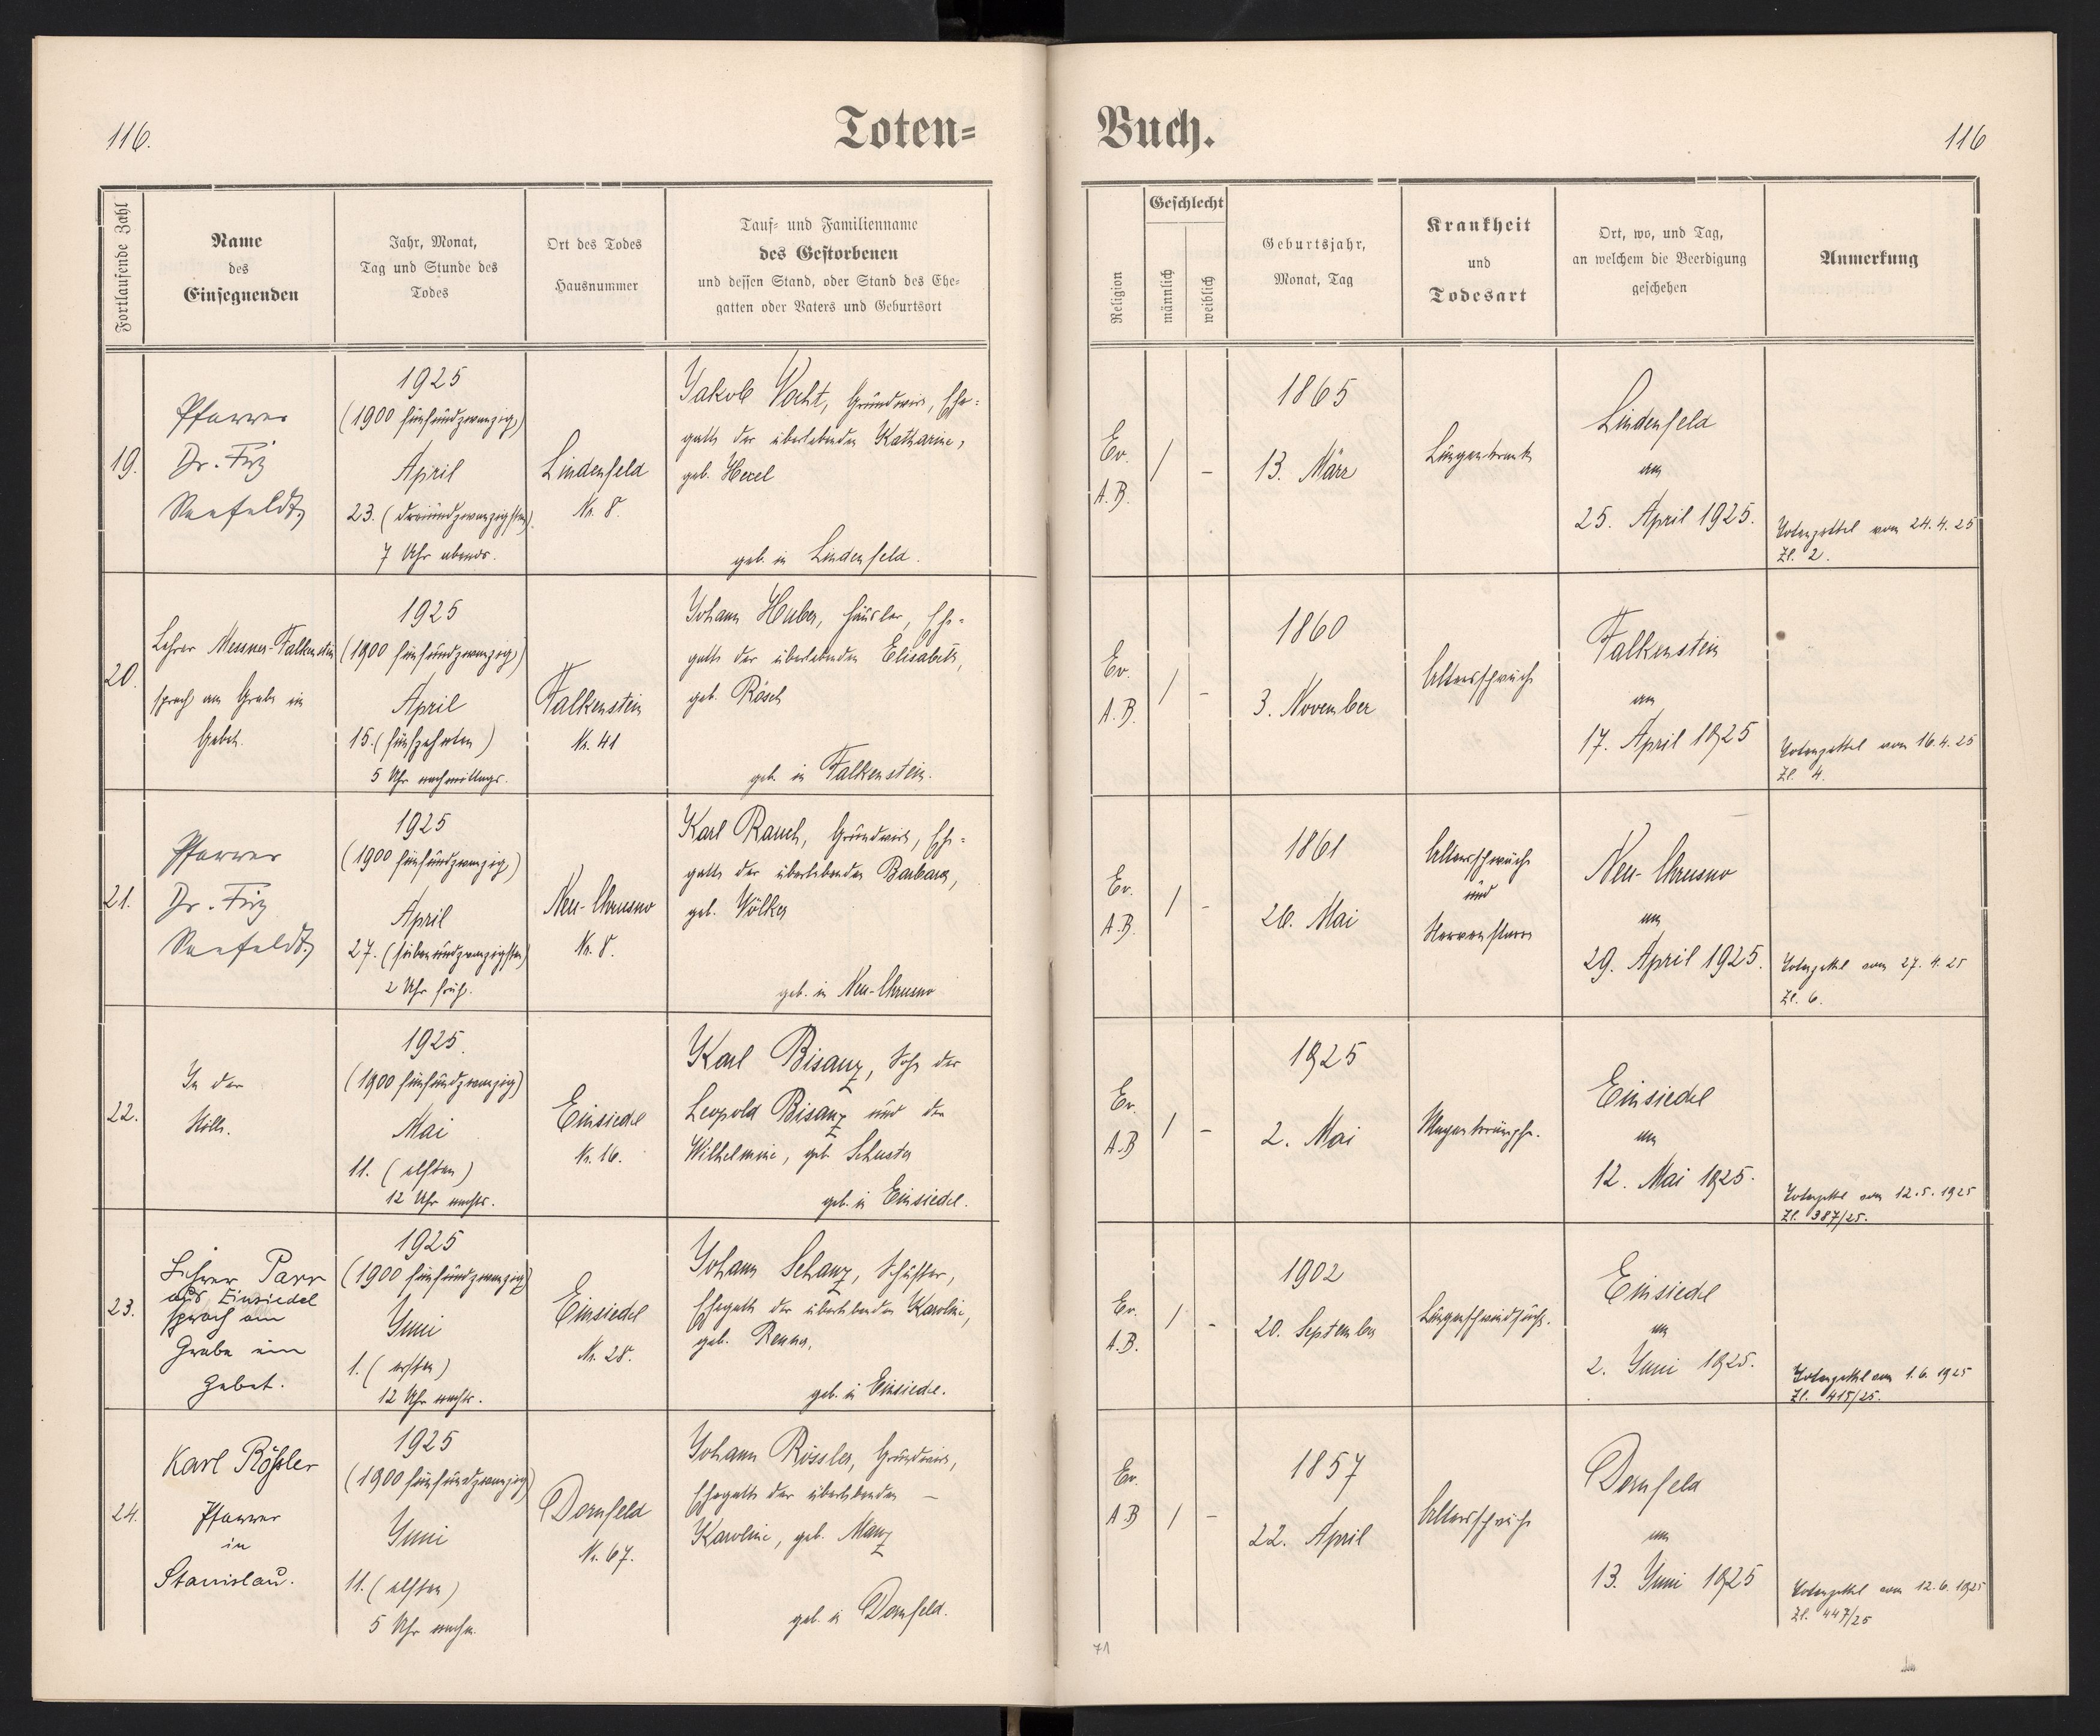 116.
Toten=
Fortlaufende Zahl
Name
des
Einsegnenden
Jahr, Monat,
Tag und Stunde des
Todes
Ort des Todes
Hausnummer
Tauf= und Familienname
des Gestorbenen
und dessen Stand, oder Stand des Ehe=
gatten oder Vaters und Geburtsort
19.
Pfarrer
Dr. Friz
Seefeldt
1925
(1900 fünfundzwanzig)
April
23. (dreiundzwanzigsten).
7 Uhr abends.
Lindenfeld
Nr. 8.
Jakob Vocht, Grundwirt, Ehe=
gatte der überlebenden Katharine,
geb. Hexel
geb. in Lindenfeld.
20.
Lehrer Messner-Falkenstein
sprach am Grabe ein
Gebet.
1925
(1900 fünfundzwanzig)
April
15. (fünfzehnten)
5 Uhr nachmittags.
Falkenstein
Nr. 41
Johann Huber, Häusler, Ehe=
gatte der überlebenden Elisabeth,
geb. Rösch
geb. in Falkenstein.
21.
Pfarrer
Dr. Friz
Seefeldt
1925
(1900 fünfundzwanzig)
April
27. (siebenundzwanzigsten)
2 Uhr früh.
Neu-Chrusno
Nr. 8.
Karl Rauch, Grundwirt, Ehe=
gatte der überlebenden Barbara,
geb. Völker
geb. in Neu-Chrusno
22.
In der
Stille.
1925.
(1900 fünfundzwanzig)
Mai
11. (elften)
12 Uhr nachts.
Einsiedel
Nr. 16.
Karl Bisanz, Sohn des
Leopold Bisanz und der
Wilhelmine, geb. Schuster
geb. in Einsiedel.
23.
Lehrer Parr
aus Einsiedel
sprach am
Grabe ein
Gebet.
1925
(1900 fünfundzwanzig)
Juni
1. (ersten)
12 Uhr nachts.
Einsiedel
Nr. 28.
Johann Schanz, Schuster,
Ehegatte der überlebenden Karoline,
geb.
geb. in Einsiedel.
24.
Karl Rößler
Pfarrer
in
Stanislau.
1925
(1900 fünfundzwanzig)
Juni
11. (elften)
5 Uhr nachm.
Dornfeld
Nr. 67.
Johann Rössler, Grundwirt,
Ehegatte der überlebenden —
Karoline, geb. Manz
geb. in Dornfeld.
Buch.
116
Religion
Geschlecht
männlich
weiblich
Geburtsjahr,
Monat, Tag
Krankheit
und
Todesart
Ort, wo, und Tag,
an welchem die Beerdigung
geschehen
Anmerkung
Ev.
A.B.
/ –
1865
13. März
Lungenkrank
Lindenfeld
am
25. April 1925.
Totenzettel vom 24.4.25
Zl. 2.
Ev.
A.B.
/ –
1860
3. November
Altersschwäche
Falkenstein
am
17. April 1925
Totenzettel vom 16.4.25
Zl. 4.
Ev.
A.B.
/ –
1861
26. Mai
Altersschwäche
und
Neu-Chrusno
am
29. April 1925.
Totenzettel vom 27.4.25
Zl. 6.
Ev.
A.B
/ –
1925
2. Mai
Magenkrämpfe.
Einsiedel
am
12. Mai 1925.
Totenzettel vom 12.5.1925
Zl. 387/25.
Ev.
A.B.
/ –
1902
20. September
Lungenschwindsucht.
Einsiedel
am
2. Juni 1925.
Totenzettel vom 1.6.1925
Zl. 415/25.
Ev.
A B
/ –
1857
22. April
Altersschwäche
Dornfeld
am
13. Juni 1925
Totenzettel vom 12.6.1925
Zl. 447/25
71